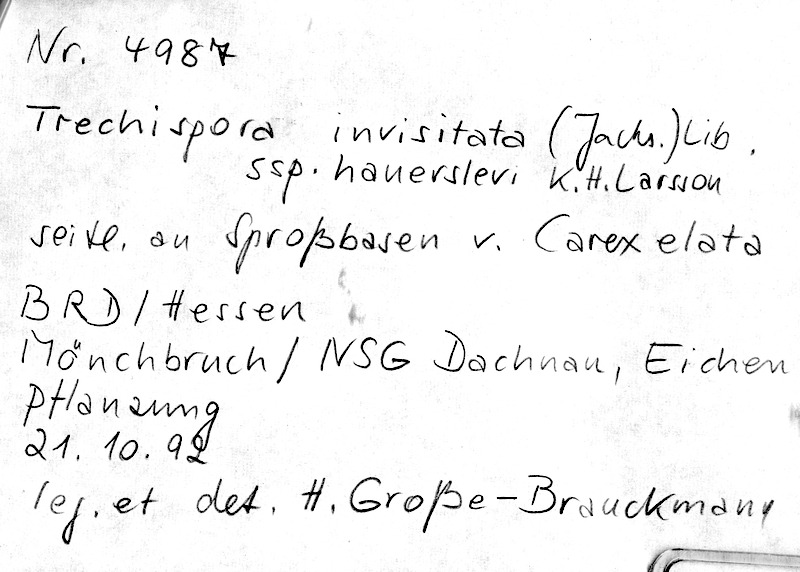 Nr. 4987
Trechispora invisitata (Jacks.) Lib.
ssp. hauerslevi K.H. Larsson
seitl. an Sproßbasen v. Carex elata
BRD / Hessen
Mönchbruch / NSG Dachnau, Eichen
pflanzung
21. 10. 92
leg. et det. H. Große-Brauckmann